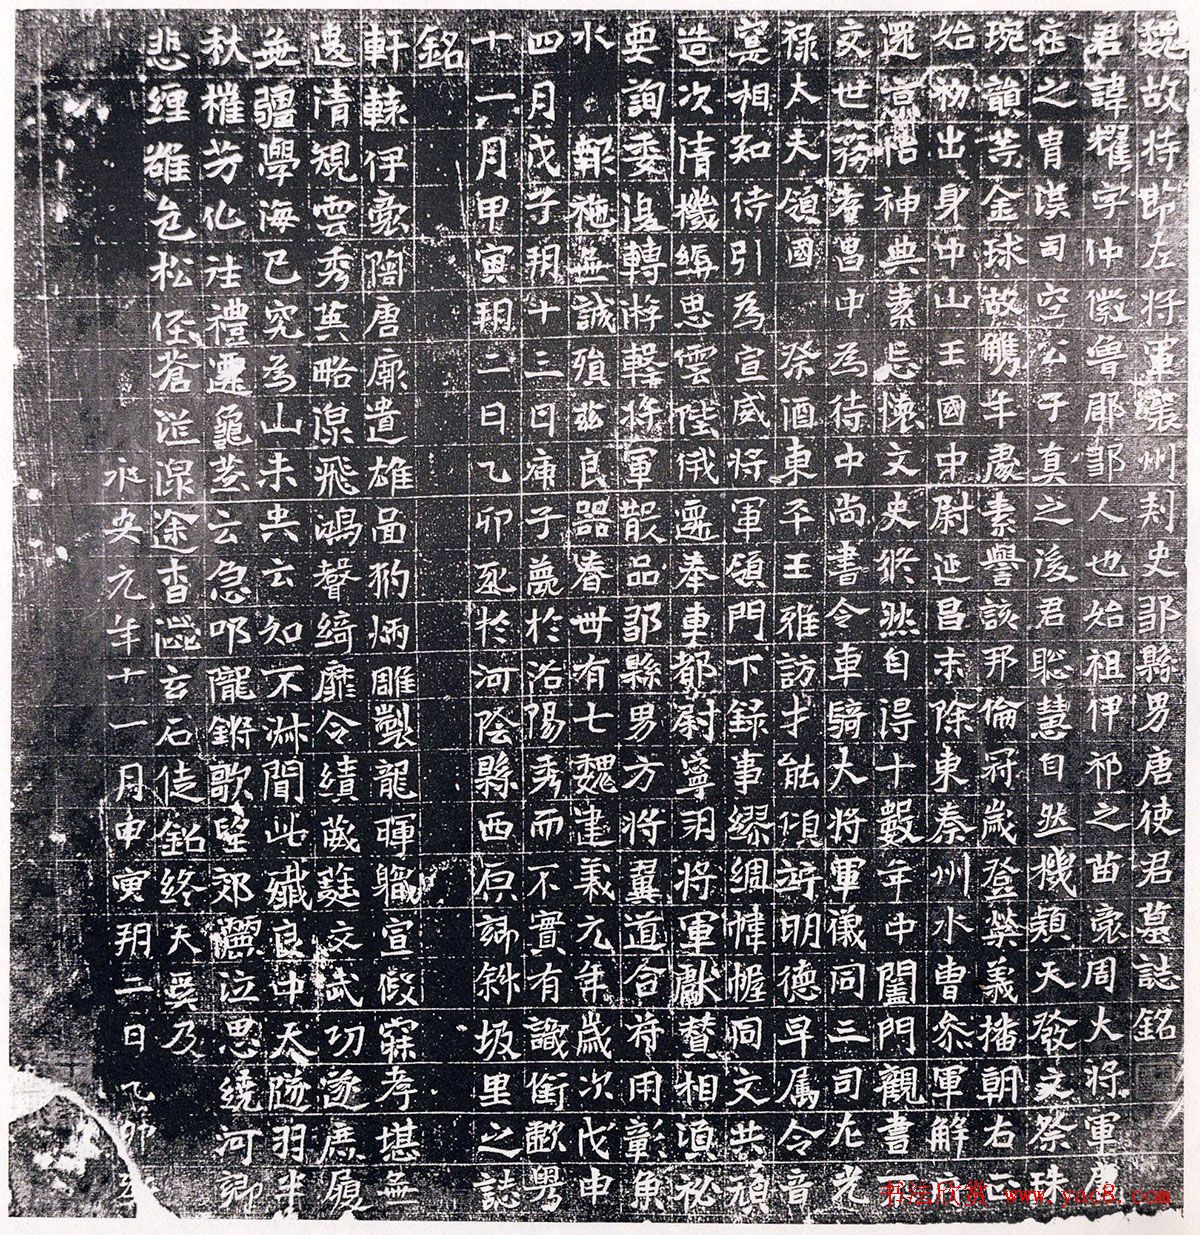 魏故持節左將軍襄州刺史鄒縣男唐使君墓誌銘
君諱耀字仲徽魯郡鄒人也始祖伊祁之苗裔周大將軍
之胄漢司空公子真之後君聡慧自然機穎天發文祭珠
琬韻荼金球故觿年處素譽該邦倫冠歲登榮義播朝右正
始初出身中山王國中尉延昌末除東秦州水曹叅軍解
還言悟神典素忘懷文史然自得十數年中闔門觀書
文世務孝昌中為待中尚書令車騎大將軍儀同三司左光
祿大夫領國祭酒東平王雅訪才能頌明德早属令音
寞相知侍引為宣威將軍領門下録事繆綢幃幄洞文共頑
造次清機縟思雲陛俄遷奉車都尉寧羽將軍獻賛相湏祕
要詢委復轉游擊將軍散品鄒縣男方將翼道合符用彰魚
水報施無誠殞兹良器春世有七魏建義元年歲次戊申
四月戊子朔十三日庚子薨於洛陽秀而不實有識銜歎粤
十一月甲寅朔二日乙卯於河陰縣西原斜坂里之誌
銘
軒轅伊亮陶唐廓遺雄啚豹炳雕製龍暉職宣假寐孝堪無
邊清規雲秀英略深飛鴻聲綺靡令績葳蕤文武功遂庶履
無疆學海已究為山未央云知不淋間此殲良中天隨羽半
秋摧芳仁往禮遷龜蓍云急叩隴鏘歌望郊靈泣思繞河卿
悲纏雄邑松侄蒼深途杳玄石徒銘終天奚乃
永安元年十一月甲寅朔二日乙卯
书法欣赏 www.yac8.com